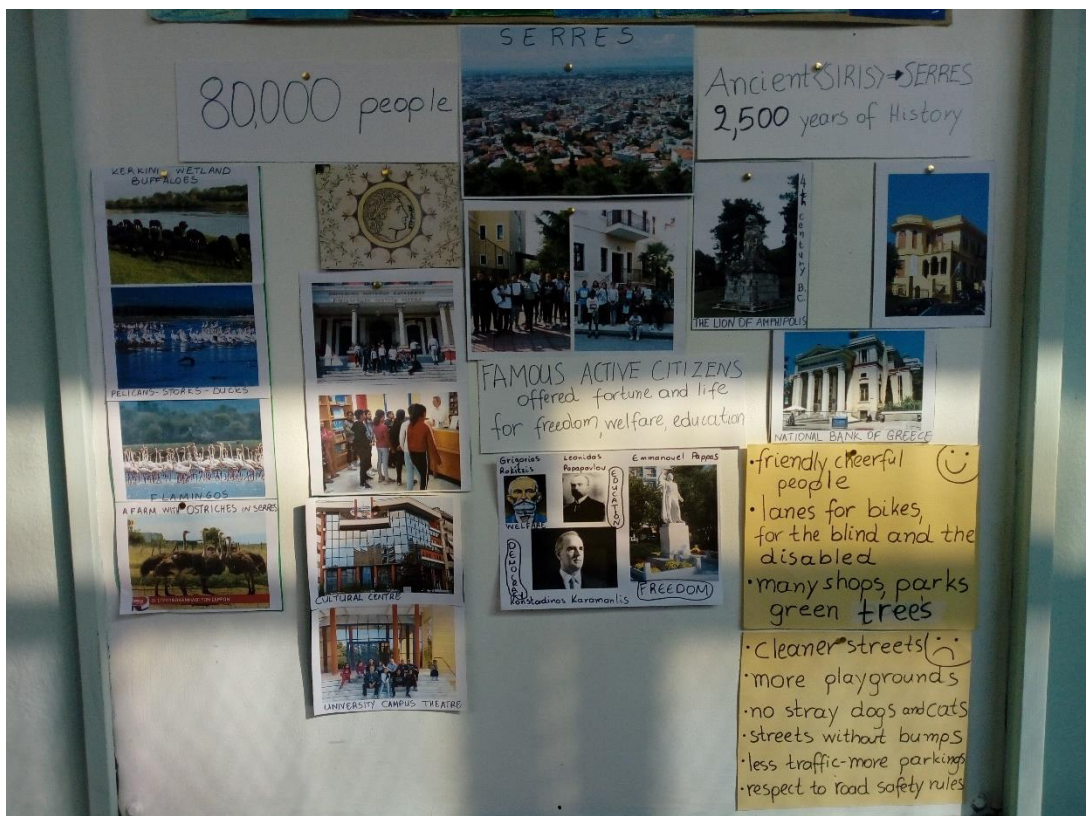 SERRES
80,000 people
Ancient <SIRIS> → SERRES
2,500 years of History
KERKINI WETLAND
BUFFALOES
PELICANS-STORKS-DUCKS
FLAMINGOS
A FARM WITH OSTRICHES IN SERRES
CULTURAL CENTRE
UNIVERSITY CAMPUS THEATRE
FAMOUS ACTIVE CITIZENS
offered fortune and life
for freedom, welfare, education
Grigorios
WELFARE
Leonidas
Papapavlou
EDUCATION
Emmanouel Pappas
FREEDOM
DEMOCRACY
Konstadinos Karamanlis
4th century B.C.
THE LION OF AMPHIPOLIS
NATIONAL BANK OF GREECE
•friendly cheerful
people
•lanes for bikes,
for the blind and the
disabled
•many shops, parks
green trees
•cleaner streets
•more playgrounds
•no stray dogs and cats
•streets without bumps
•less traffic-more parkings
•respect to road safety rules